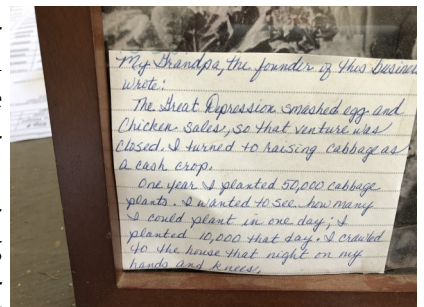 My Grandpa, the founder of this busines
wrote:
The Great Depression smashed egg and
Chicken sales, so that venture was
closed. I turned to raising cabbage as
a cash crop.
One year I planted 50,000 cabbage
plants. I wanted to see how many
I could plant in one day; I
planted 10,000 that day. I crawled
to the house that night on my
hands and knees.